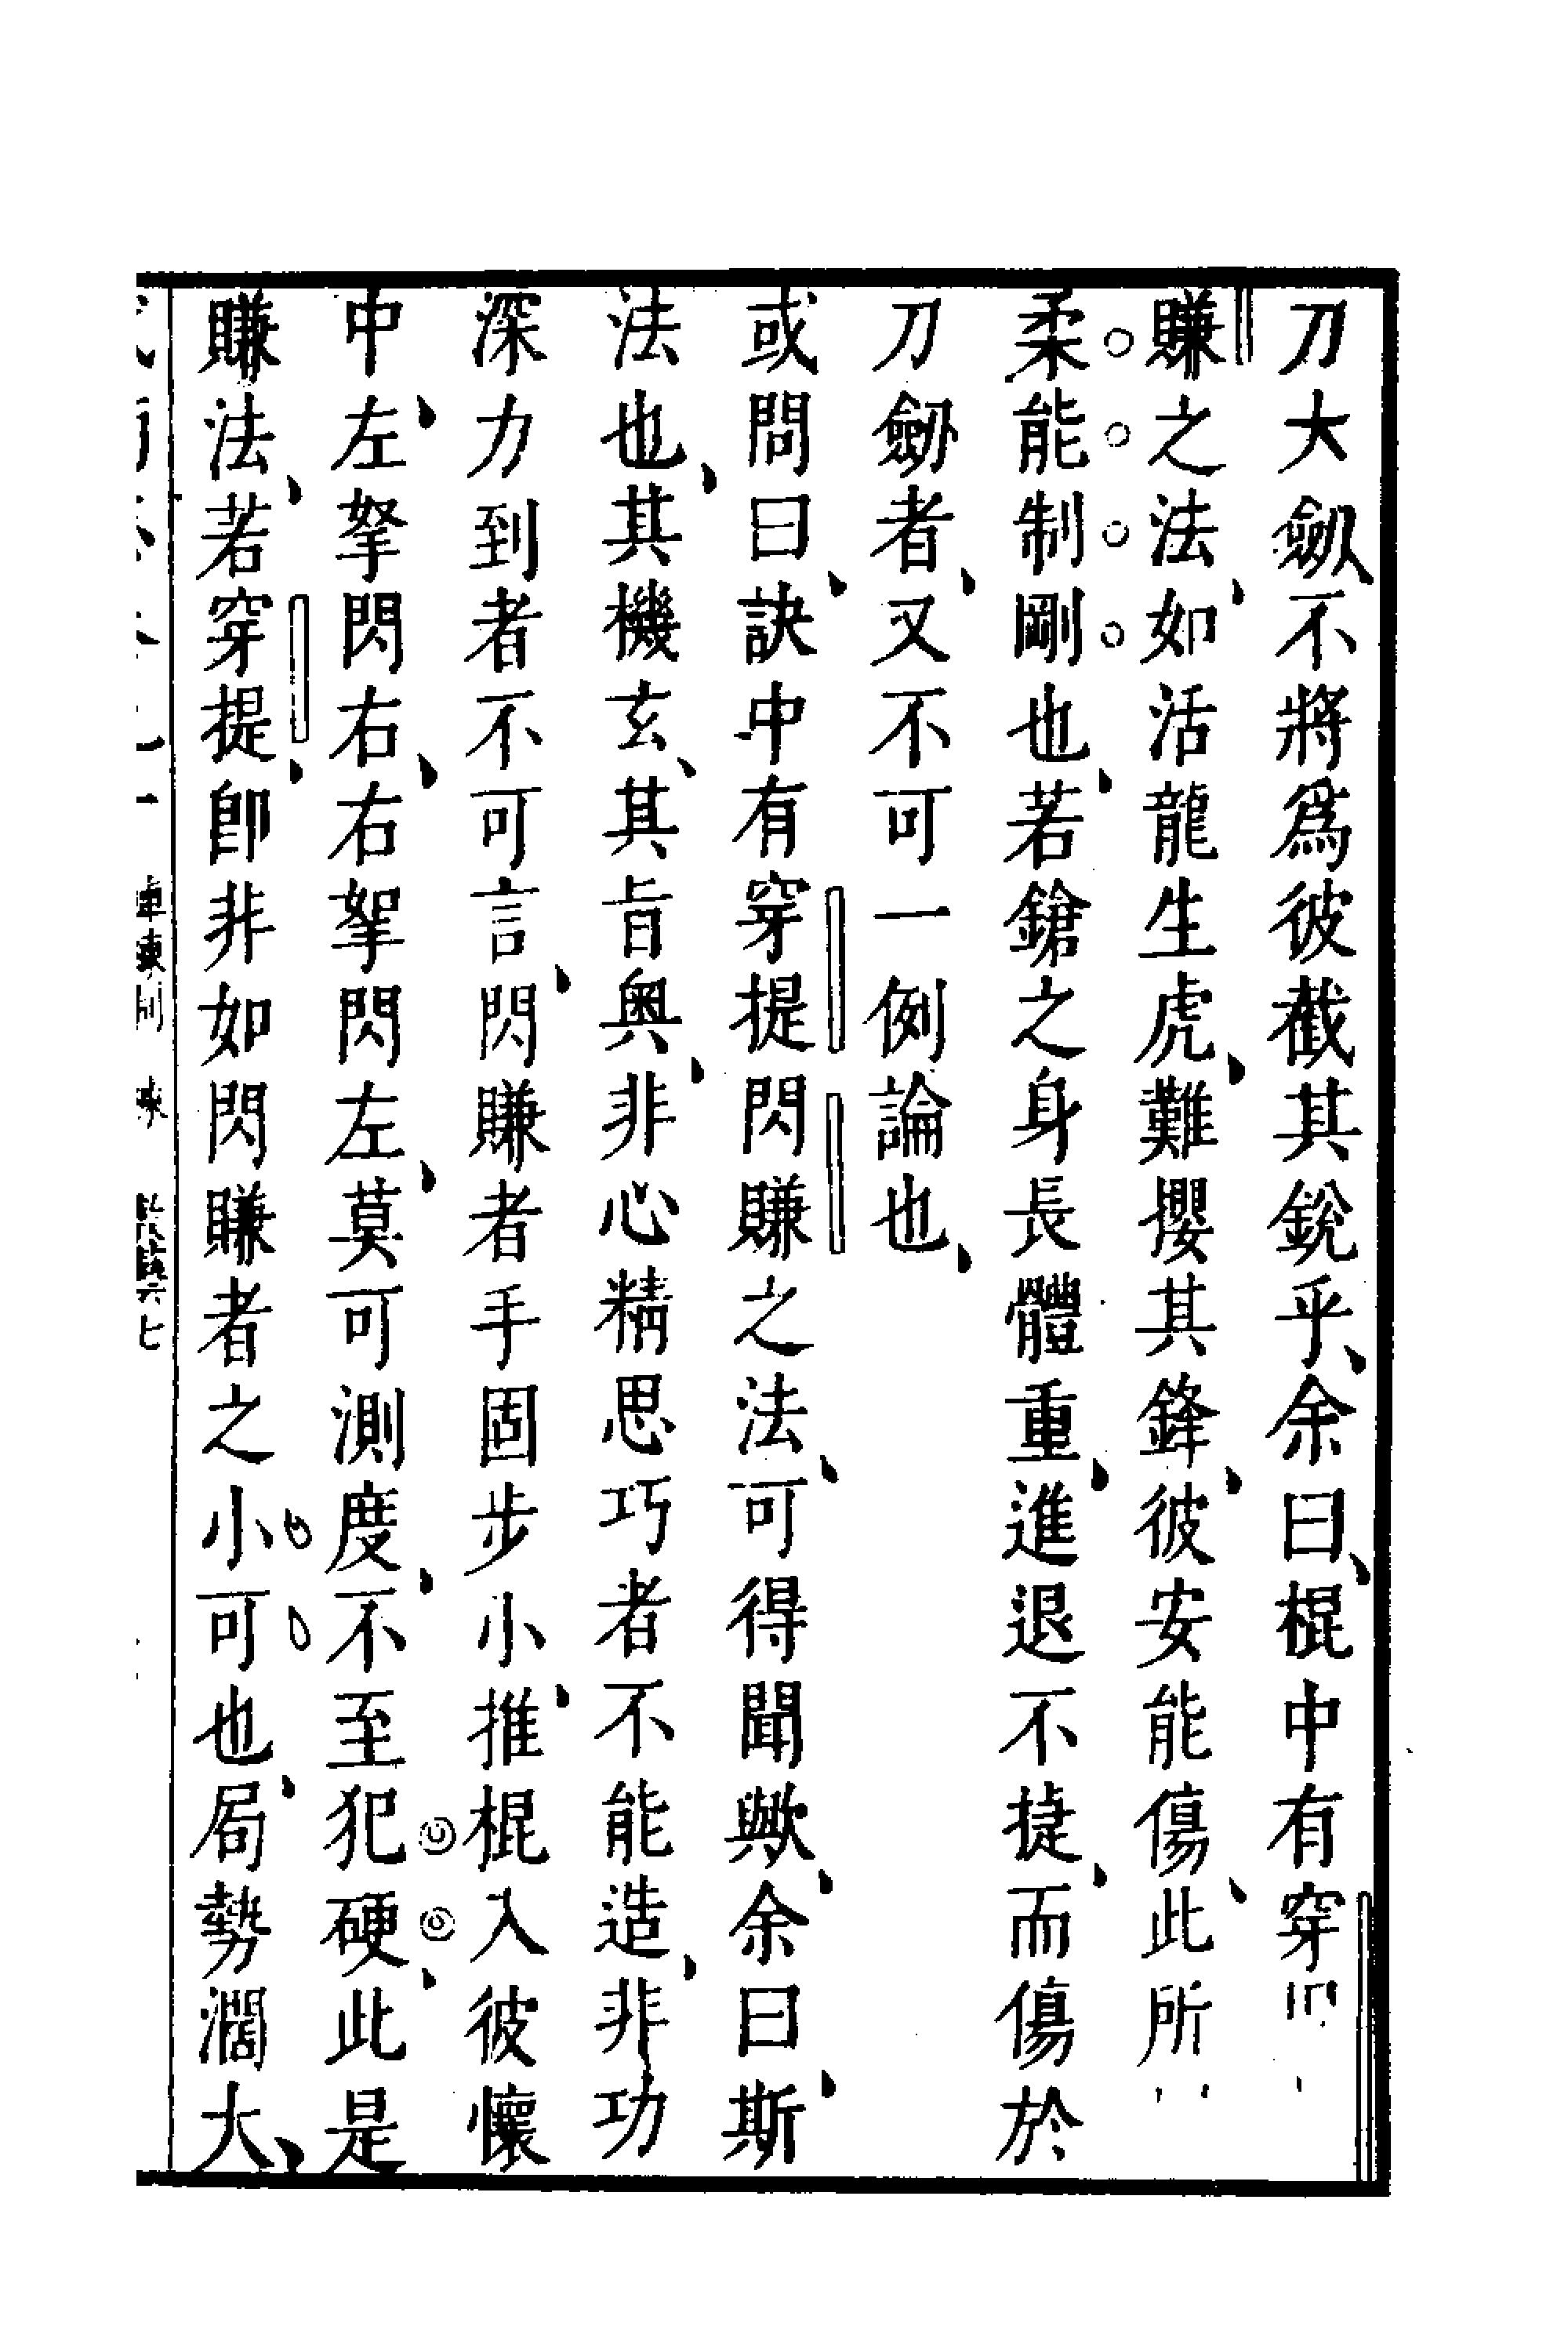 刀大劔不將爲彼截其銳乎余曰棍中有穿
賺之法如活龍生虎難攖其鋒彼安能傷此所
柔能制剛也若鎗之身長體重進退不捷而傷於
刀劔者又不可一例論也
或問曰訣中有穿提閃賺之法可得聞歟余曰斯
法也其機玄其旨奥非心精思巧者不能造非功
深力到者不可言閃賺者手固步小推棍入彼懷
中左拏閃右右拏閃左莫可測度不至犯硬此是
賺法若穿提卽非如閃賺者之小可也局勢濶大